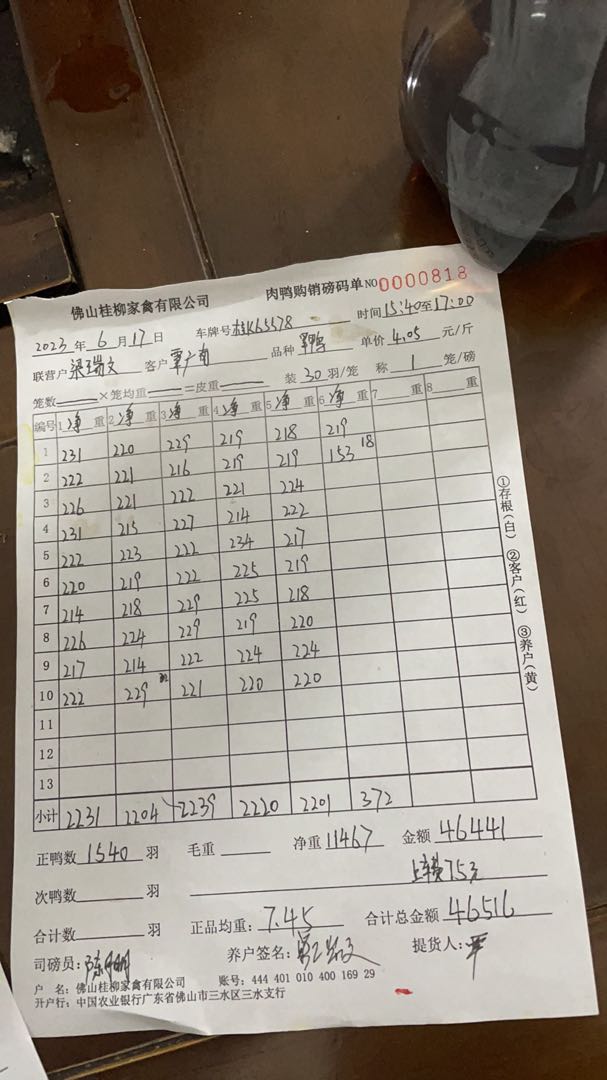 佛山桂柳家禽有限公司 肉鸭购销磅码单 NO0000818
2023年6月17日 车牌号桂K65578 时间15:40至17:00
联营户 客户 品种 单价4.05元/斤
笼数 ×笼均重 =皮重 装30羽/笼 称1笼/磅
编号 1净重 2净重 3净重 4净重 5净重 6净重 7重 8重
1 231 220 229 219 218 219
2 222 221 216 219 219 153 18
3 226 221 222 221 224
4 231 215 227 214 222
5 222 223 222 234 217
6 220 219 222 225 219
7 214 218 229 225 218
8 226 224 229 219 220
9 217 214 222 224 224
10 222 229 221 220 220
11
12
13
小计 2231 2204 2239 2220 2201 372
正鸭数1540羽 毛重 净重11467 金额46441
上车费75元
次鸭数 羽
合计数 羽 正品均重:7.45 合计总金额46516
司磅员: 养户签名: 提货人:
户 名:佛山桂柳家禽有限公司 账号:444 401 010 400 169 29
开户行:中国农业银行广东省佛山市三水区三水支行
①存根(白) ②客户(红) ③养户(黄)